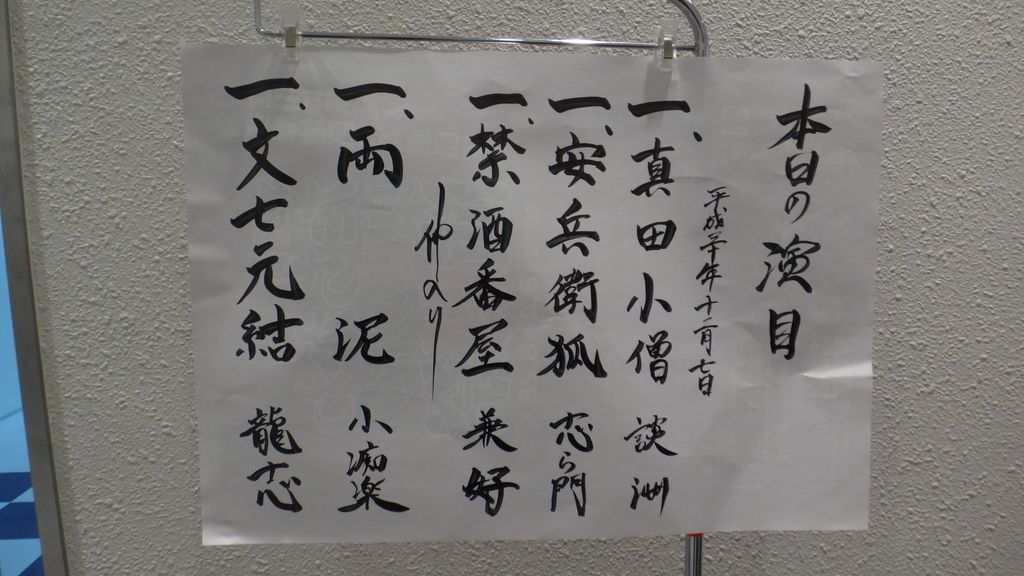 本日の演目
平成三十年十二月七日
一、真田小僧 談洲
一、安兵衛狐 志ら門
一、禁酒番屋 兼好
仲入り
一、両泥 小痴楽
一、文七元結 龍志